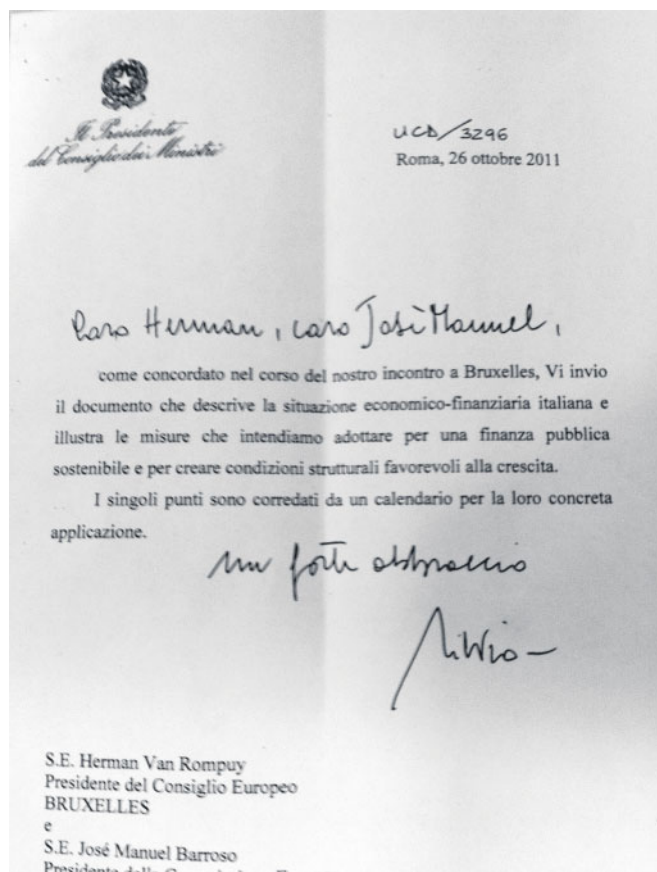 Il Presidente
del Consiglio dei Ministri
UCD/3296
Roma, 26 ottobre 2011
Caro Herman, caro José Manuel,
come concordato nel corso del nostro incontro a Bruxelles, Vi invio
il documento che descrive la situazione economico-finanziaria italiana e
illustra le misure che intendiamo adottare per una finanza pubblica
sostenibile e per creare condizioni strutturali favorevoli alla crescita.
I singoli punti sono corredati da un calendario per la loro concreta
applicazione.
un forte abbraccio
Silvio
S.E. Herman Van Rompuy
Presidente del Consiglio Europeo
BRUXELLES
e
S.E. José Manuel Barroso
Presidente della